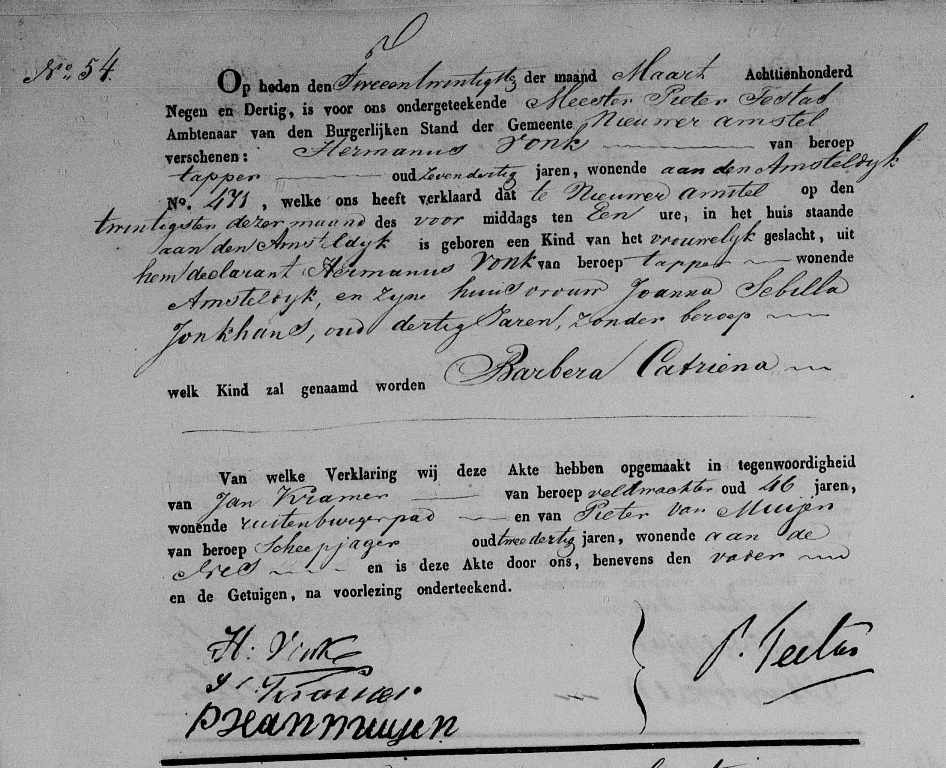 No. 54.
Op heden den Tweeentwintigste der maand Maart Achttienhonderd
Negen en Dertig, is voor ons ondergeteekende Meester Pieter Testas
Ambtenaar van den Burgerlijken Stand der Gemeente Nieuwer amstel
verschenen: Hermanus Vonk van beroep
tapper oud zevendertig jaren, wonende aan den Amsteldyk
No. 471, welke ons heeft verklaard dat te Nieuwer amstel op den
twintigsten dezer maand des voor middags ten Een ure, in het huis staande
aan den Amsteldyk is geboren een Kind van het vrouwelyk geslacht, uit
hem declarant Hermanus Vonk van beroep tapper wonende
Amsteldyk, en zyne huisvrouw Joanna Sebilla
Jonkhans, oud dertig Jaren, zonder beroep
welk Kind zal genaamd worden Barbera Catriena
Van welke Verklaring wij deze Akte hebben opgemaakt in tegenwoordigheid
van Jan Kramer van beroep veldwachter oud 46 jaren,
wonende zuitenburgerpad en van Pieter van Muijen
van beroep Scheepjager oud tweedertig jaren, wonende aan de
en is deze Akte door ons, benevens den vader
en de Getuigen, na voorlezing onderteekend.
H: Vink
Kramer
P van muijen
P. Testas